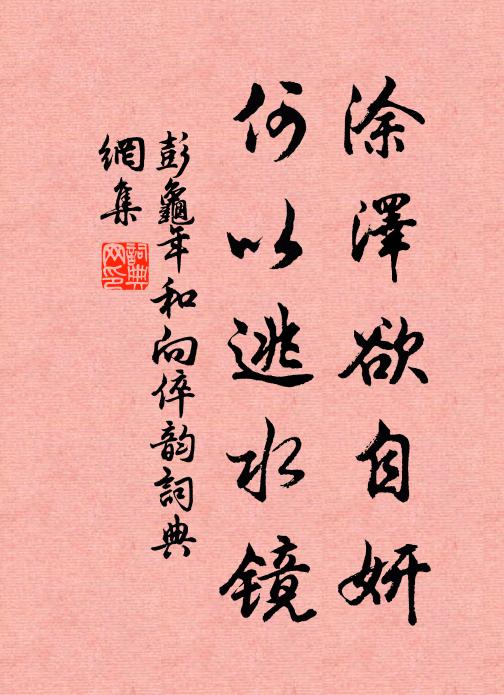 涂澤欲自妍
何以逃水鏡
彭龜年和向倅韵詞典
網集
詞典
网印